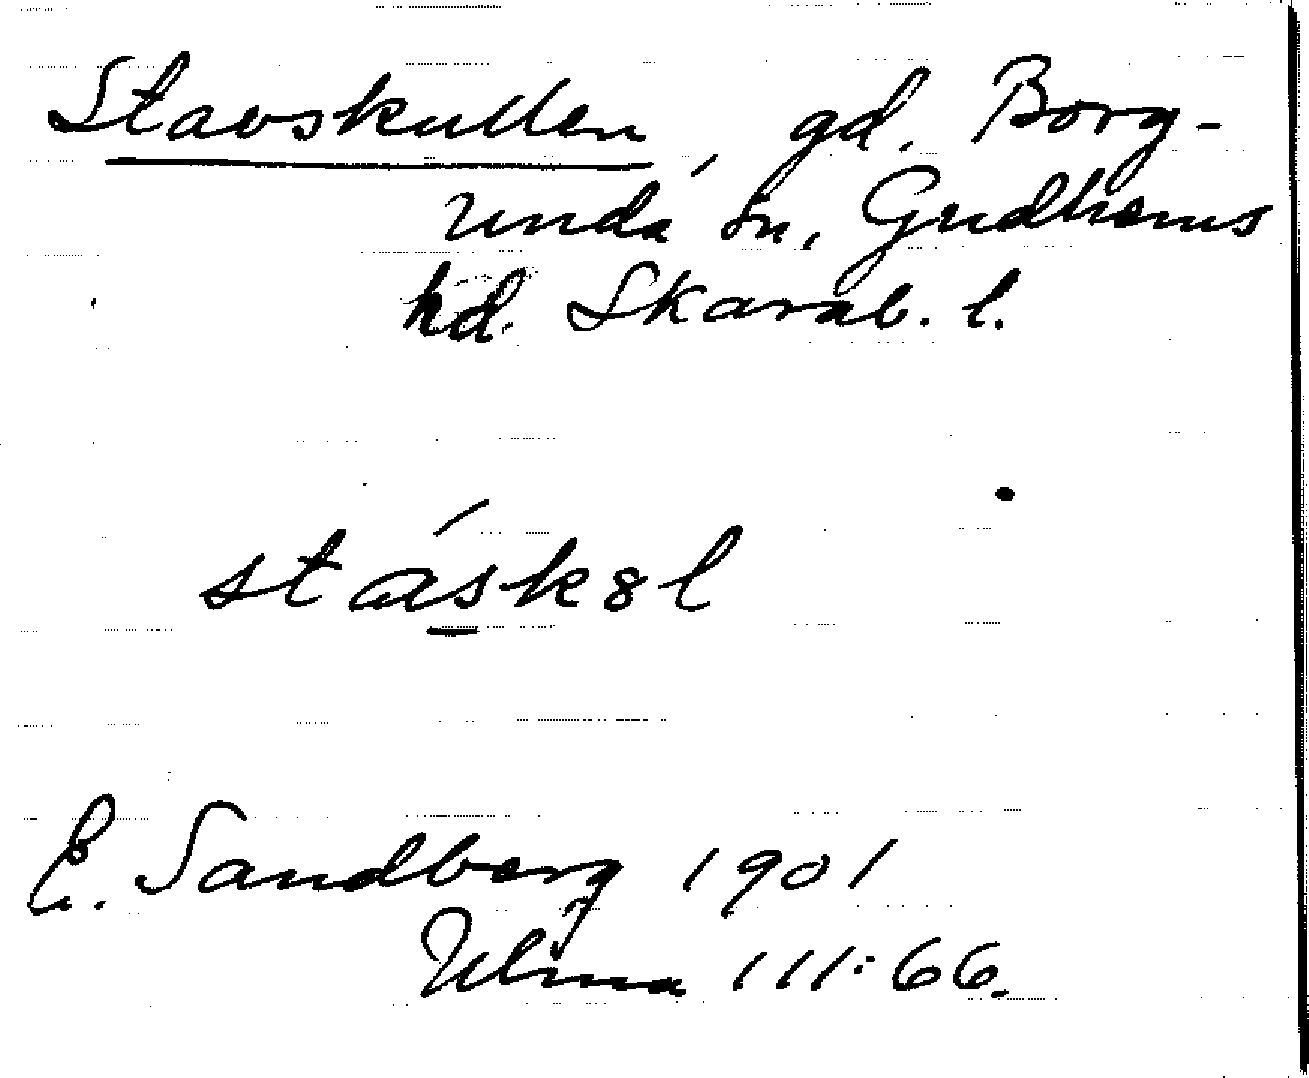 Stavskullen, gd. Borg-
unda sn, Gudhems
hd. Skarab. l.
stásk8l
E. Sandberg 1901
Ulma 111:66.